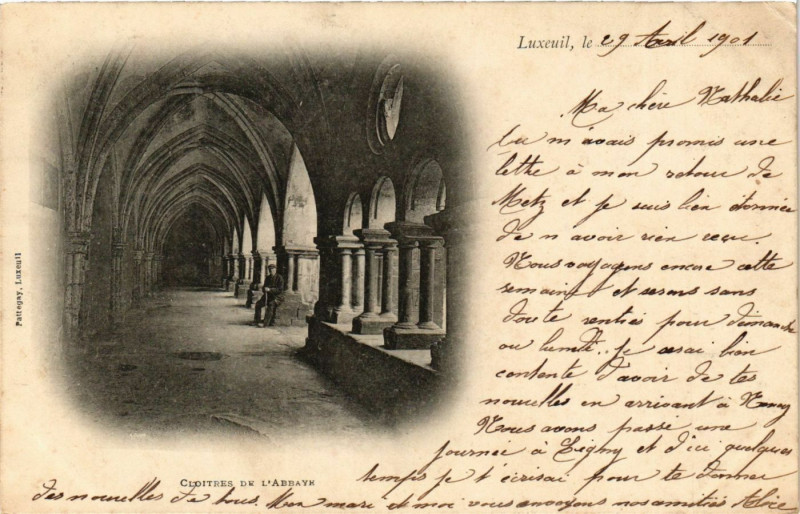 Luxeuil, le 29 Avril 1901
Ma chère Nathalie
tu m'avais promis une
lettre à mon retour de
Metz et je suis bien étonnée
de n avoir rien reçu.
Nous voyageons encore cette
semaine et serons sans
doute rentrés pour dimanche
ou lundi. Je serai bien
contente d'avoir de tes
nouvelles en arrivant à Nancy
Nous avons passé une
journée à Ligny et d'ici quelques
temps je t'écrirai pour te donner
des nouvelles de tous. Mon mari et moi vous envoyons nos amitiés Alice
CLOITRES DE L'ABBAYE
Pattegay, Luxeuil